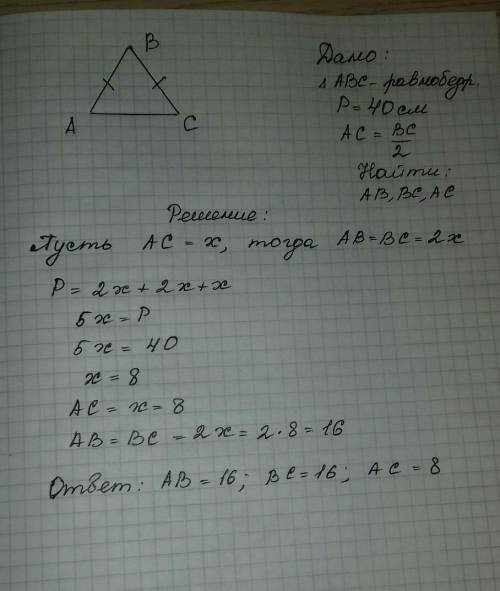 B
A
C
Дано:
Δ ABC - равнобедр.
P = 40 см
AC = BC/2
Найти:
AB, BC, AC
Решение:
Пусть AC = x, тогда AB = BC = 2x
P = 2x + 2x + x
5x = P
5x = 40
x = 8
AC = x = 8
AB = BC = 2x = 2 · 8 = 16
Ответ: AB = 16; BC = 16; AC = 8